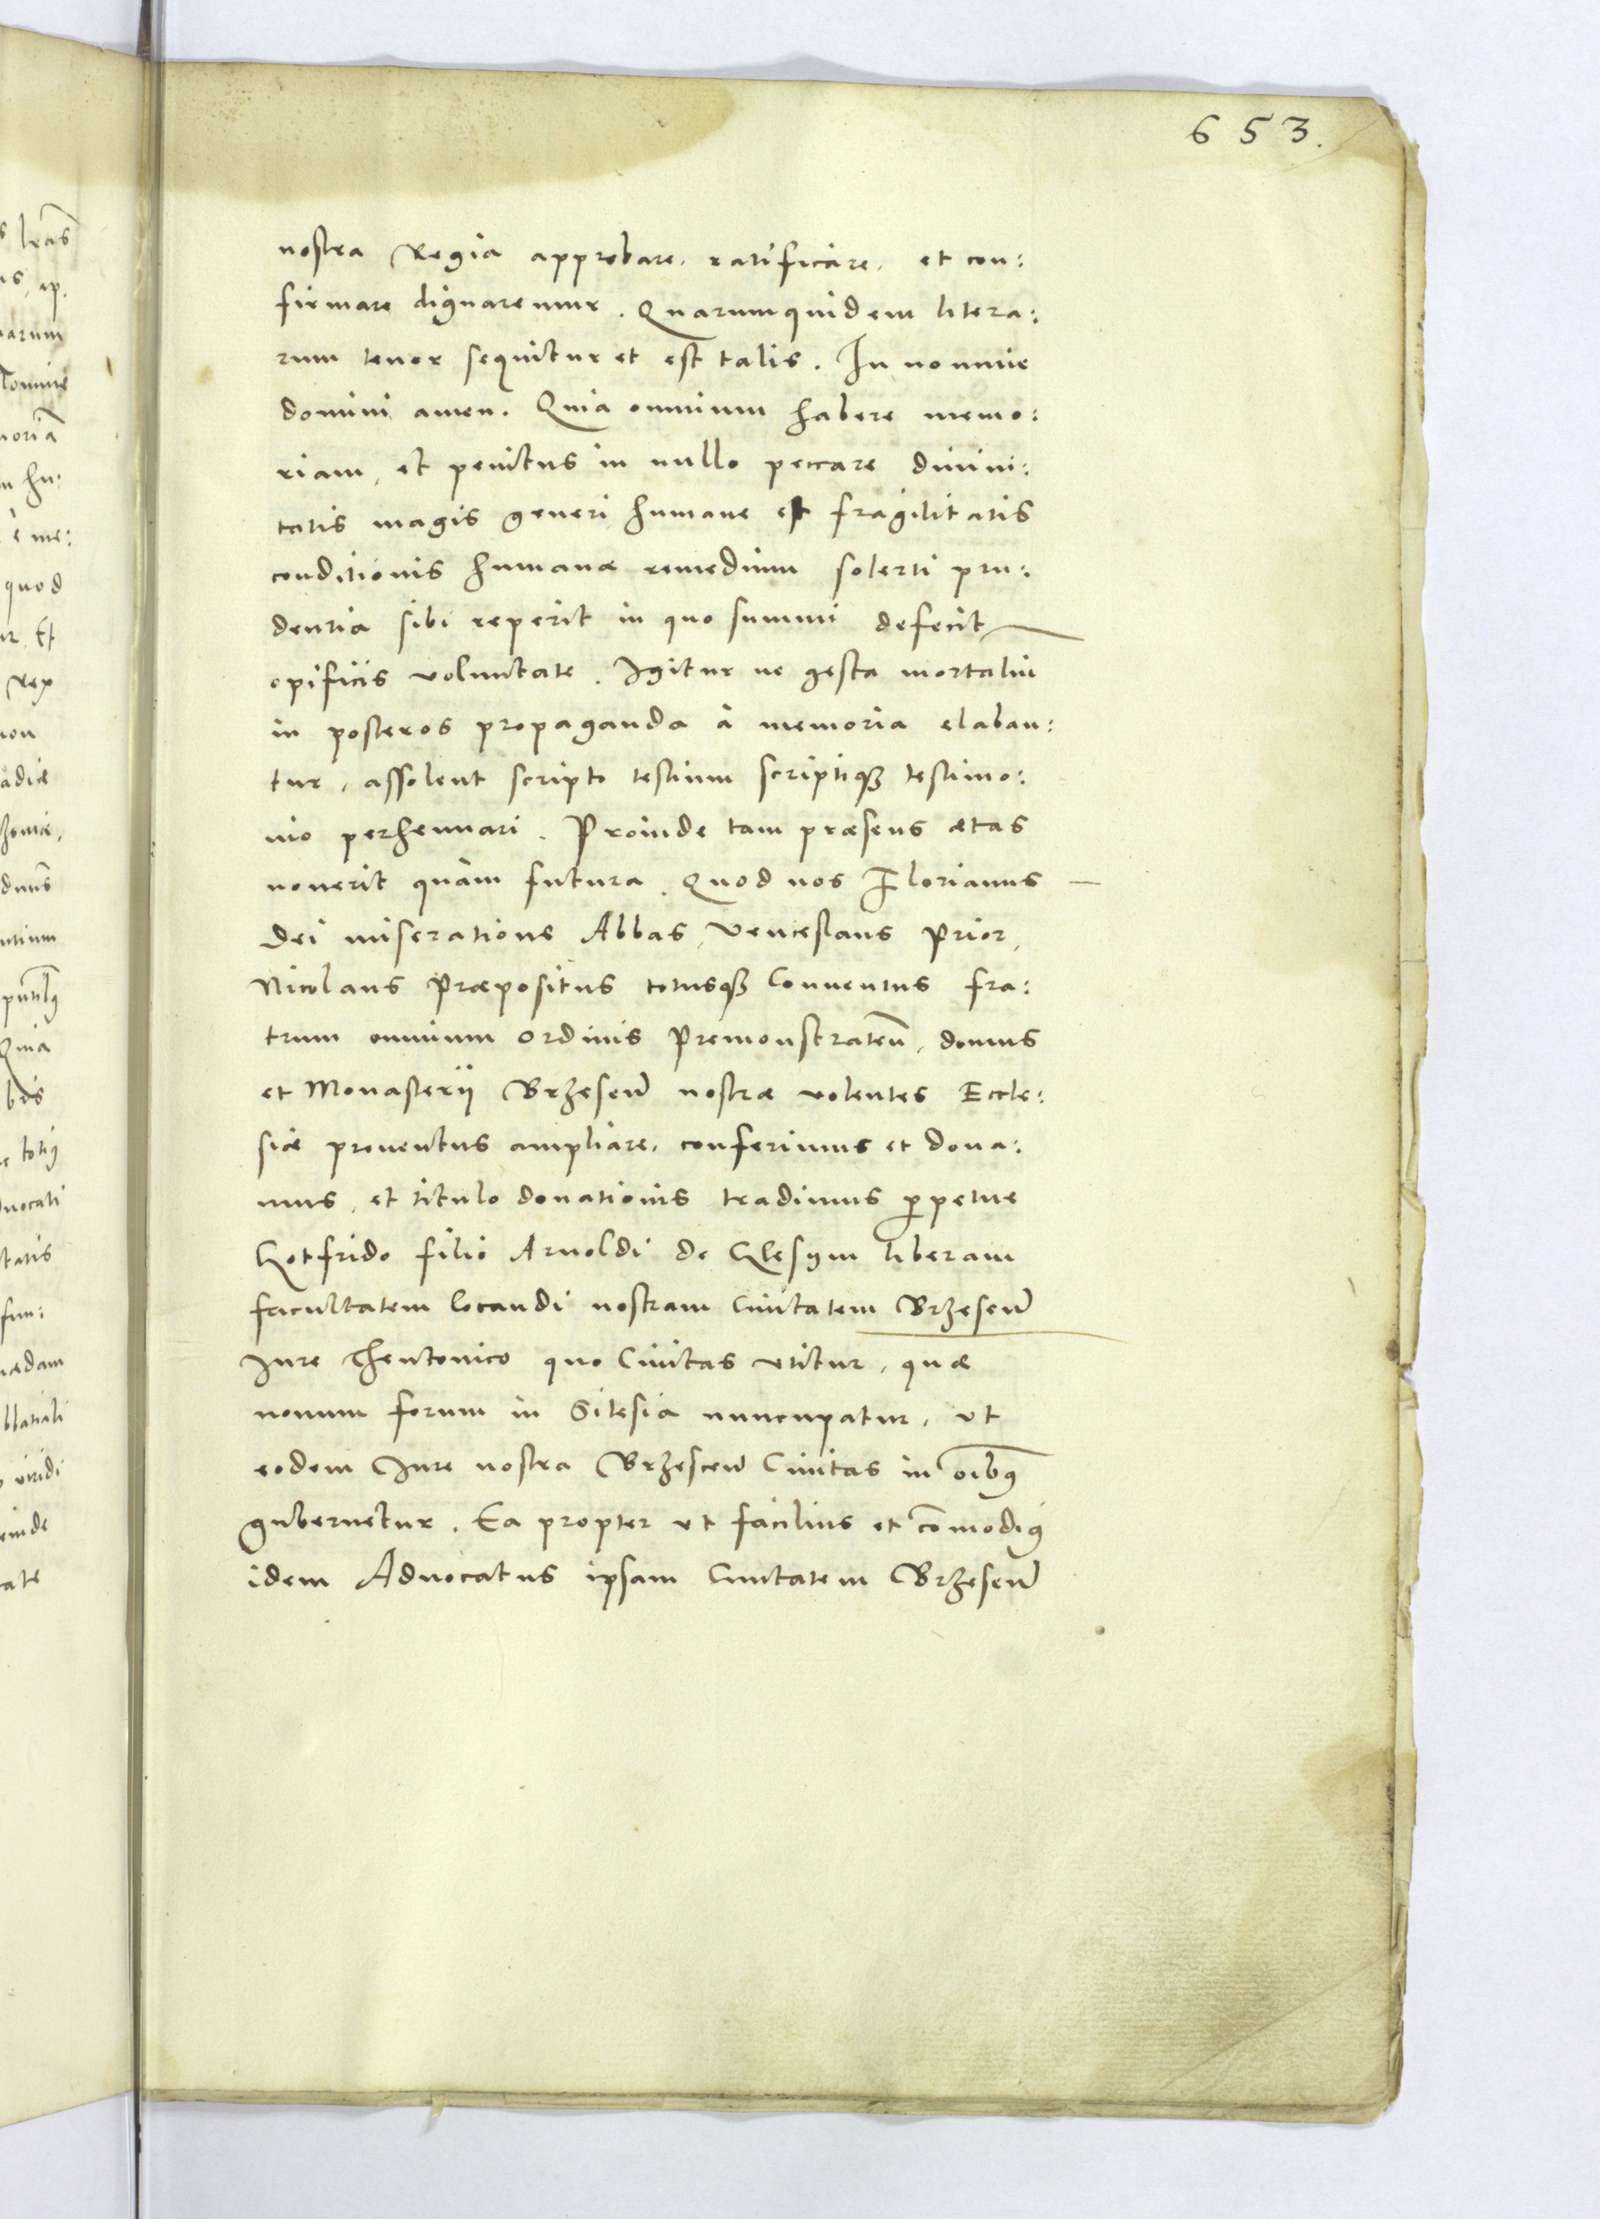 653.
nostra Regia approbare, ratificare, et con:
firmare dignaremur. Quarumquidem litera:
rum tenor sequitur et est talis. In nomine
domini amen. Quia omnium habere memo:
riam, et penitus in nullo peccare divini:
tatis magis generi humane est fragilitatis
conditionis humanæ remedium solerti pru:
dentia sibi reperit in quo summi defecit
opificis voluntate. Igitur ne gesta mortaliũ
in posteros propaganda à memoria elaban:
tur, assolent scripto testium scriptiqȝ testimo:
nio perhennari. Proinde tam præsens ætas
noverit quàm futura. Quod nos Florianus
Dei miseratione Abbas, Venceslaus Prior,
Nicolaus Præpositus totusqȝ Conventus fra:
trum omnium Ordinis Premonstrateñ, domus
et Monasterij Brzeseñ nostræ volentes Eccle:
siæ proventus ampliare, conferimus et dona:
mus, et titulo donationis tradimus ꝑpetue
Gotfrido filio Arnoldi de Glesym liberam
facultatem locandi nostram Civitatem Brzeseñ
Jure Theutonico quo Civitas utitur, quæ
novum forum in Silesia nuncupatur, ut
eodem Jure nostra Brzesceñ Civitas in oĩbꝰ
gubernetur. Ea propter ut facilius et cõmodiꝰ
idem Advocatus ipsam Civitatem Brzeseñ